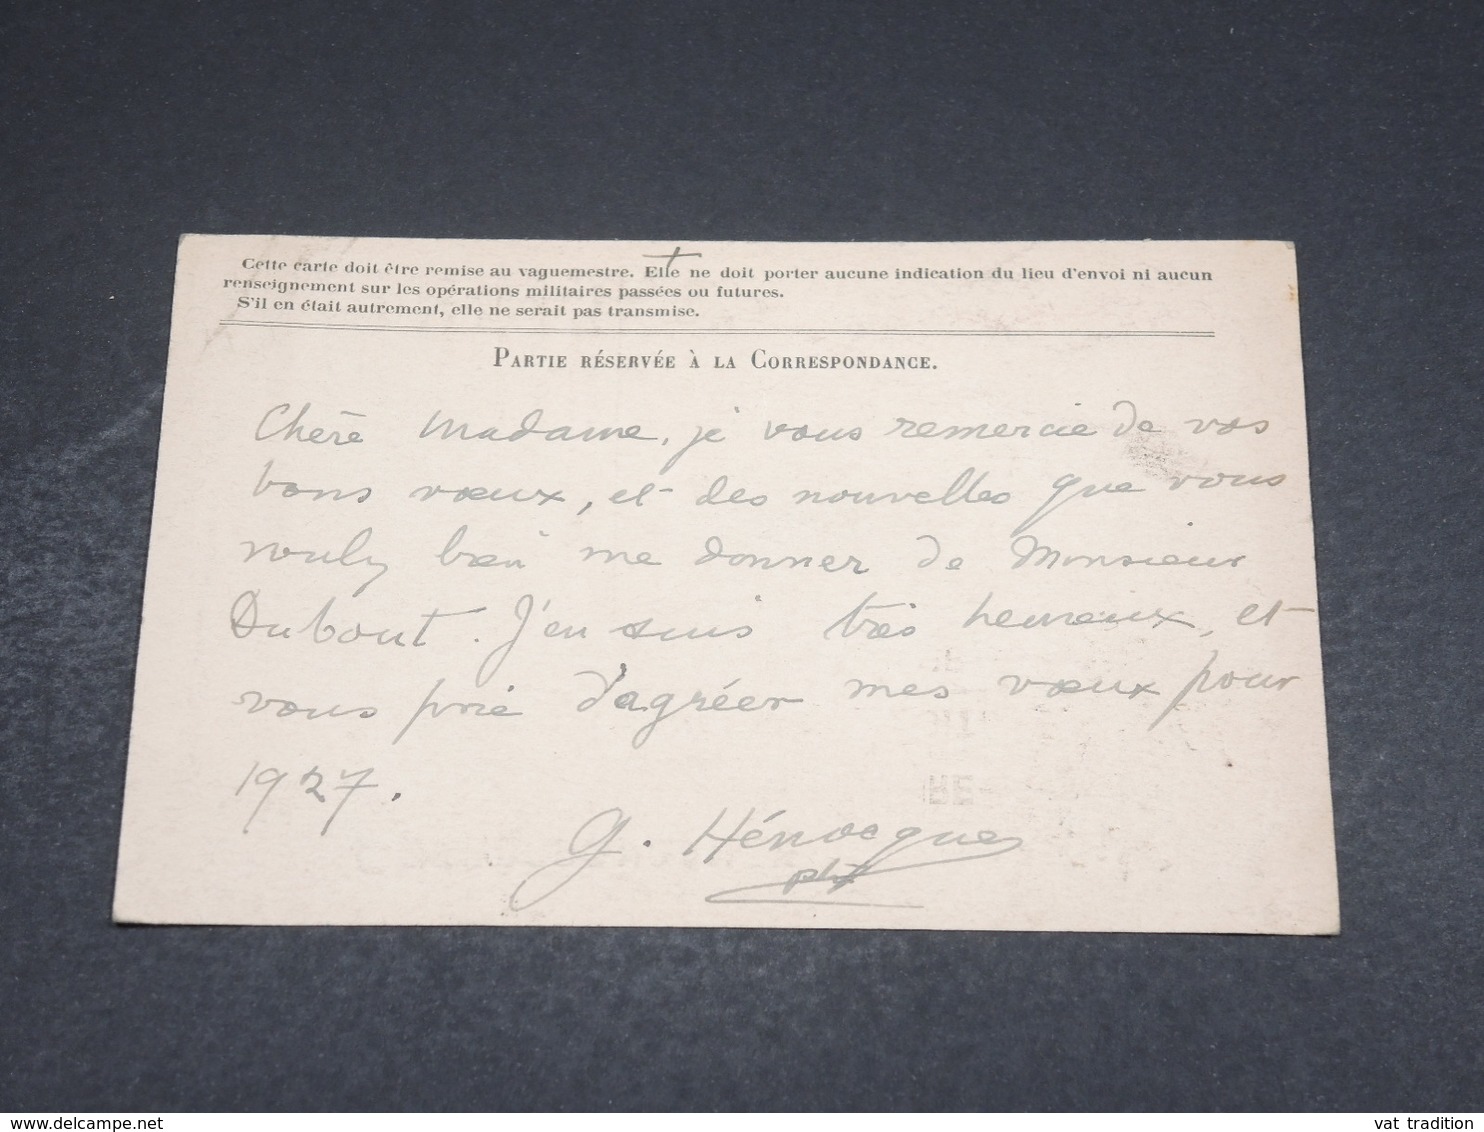 Cette carte doit être remise au vaguemestre. Elle ne doit porter aucune indication du lieu d'envoi ni aucun
renseignement sur les opérations militaires passées ou futures.
S'il en était autrement, elle ne serait pas transmise.
PARTIE RÉSERVÉE À LA CORRESPONDANCE.
Chère Madame, je vous remercie de vos
bons vœux, et des nouvelles que vous
voulez bien me donner de Monsieur
Dubout. J'en suis très heureux, et
vous prie d'agréer mes vœux pour
1927.
G. Hénocque
www.delcampe.net
vat tradition